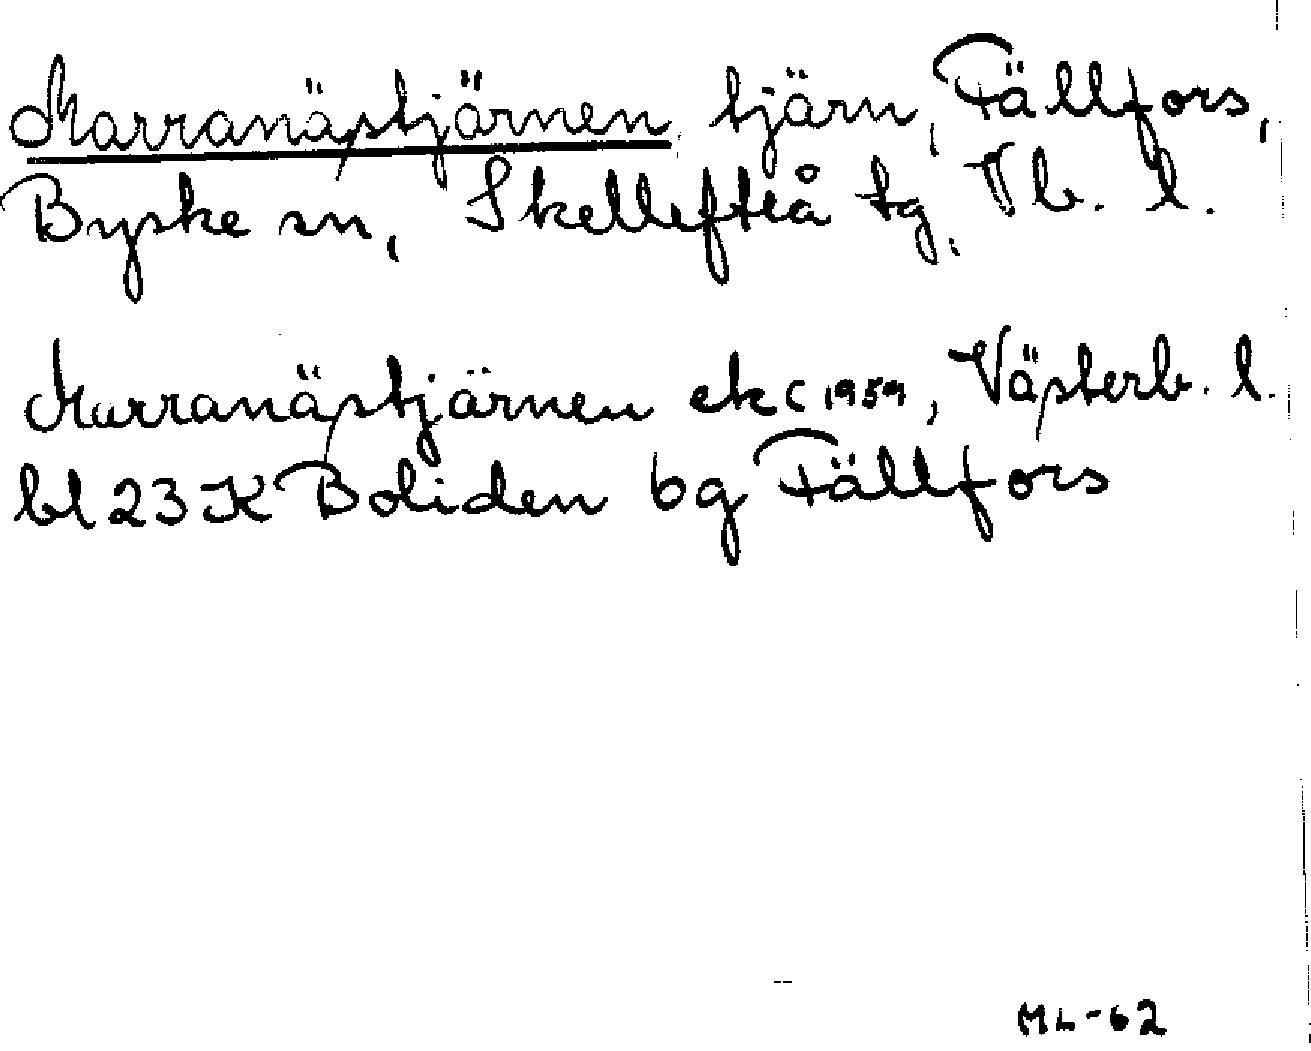 Marranästjärnen, tjärn, Fällfors,
Byske sn, Skellefteå tg, Vb. l.
Marranästjärnen ek (1959, Västerb. l.
bl 23 K Boliden 6g Fällfors
ML-62